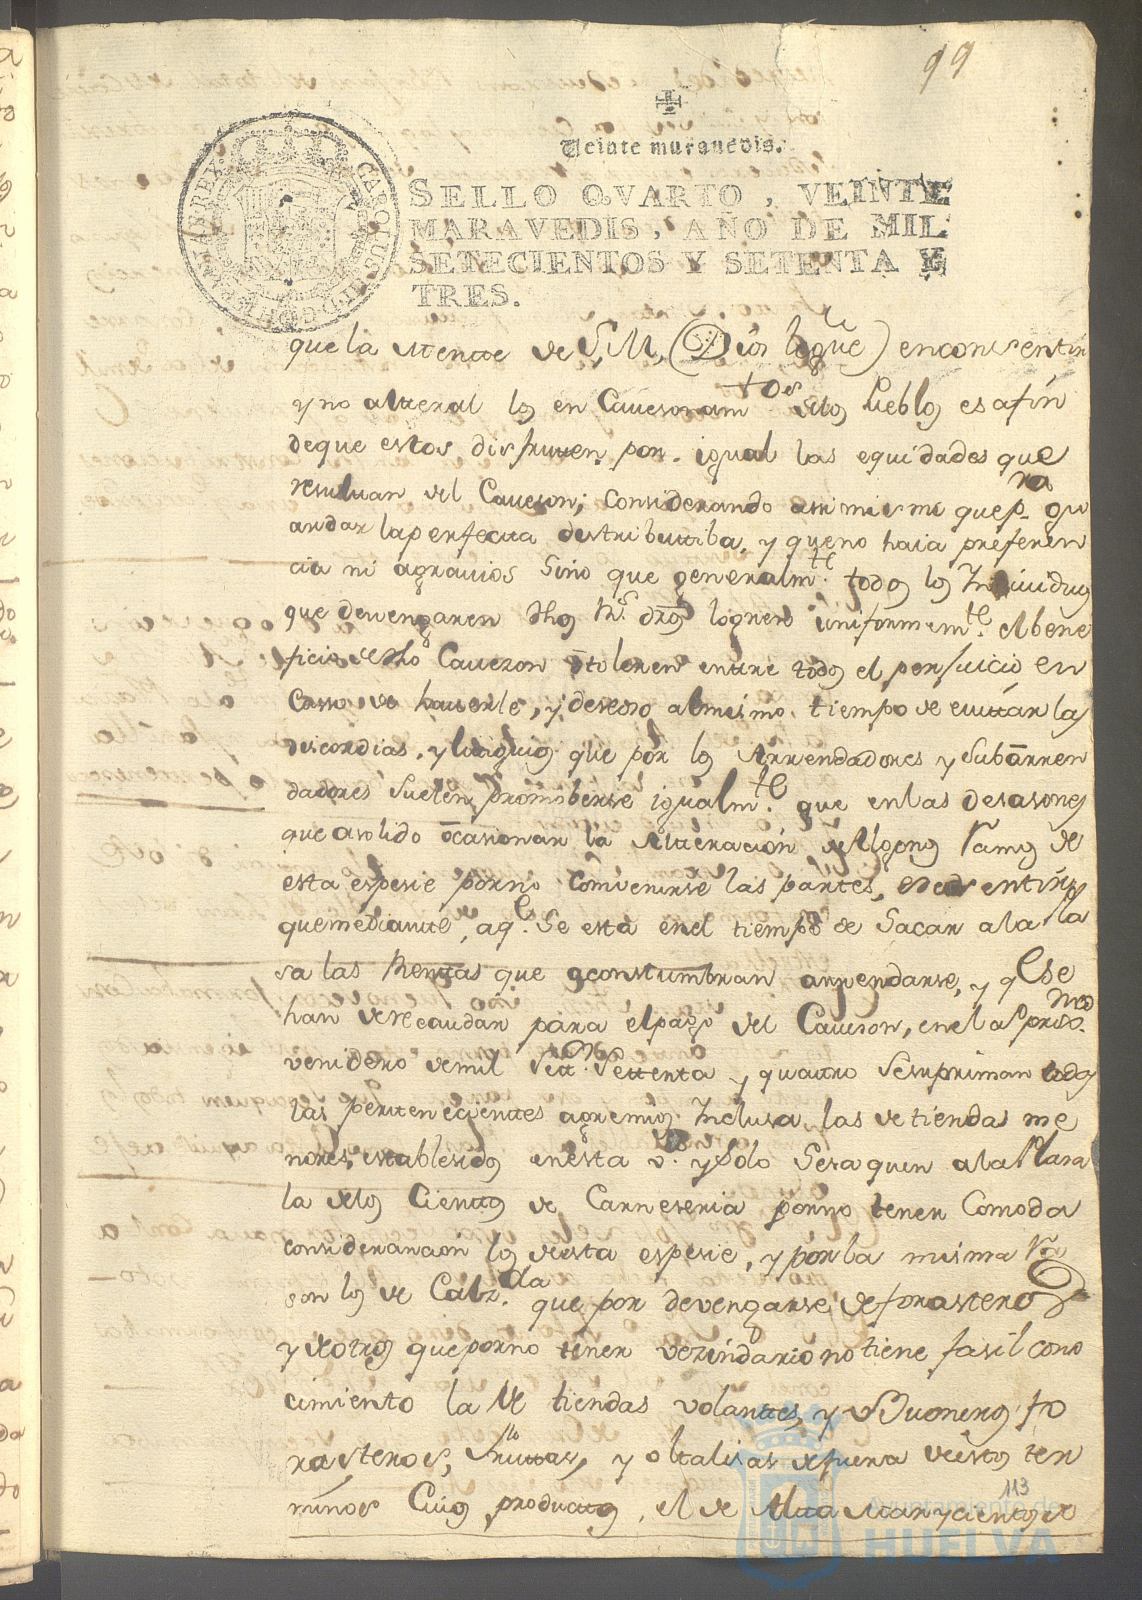 99
Veinte maravedis.
SELLO QVARTO, VEINTE
MARAVEDIS, AÑO DE MIL
SETECIENTOS Y SETENTA Y
TRES.
que la mente de S. M. (Dios legue) en consentir
y no alteral los encavesonamtos de los Pueblos es a fin
de que estos disfruten por igual las equidades que
resultan del Caveson; considerando asimismo que pra gu
ardar la perfecta destributtiba, y que no haia preferen
cia ni agravios Sino que generalmte todos los Individuos
que devengaren dhos Rs. dros logren uniformemte. el bene
ficio de dho Cavezon o toleren entre todos el perjuicio en
Casso de haverle, y deseoso al mismo tiempo de evittar las
discordias, y litigios que por los Arrendadores y Subarren
dadores suelen promoberse igualmte. que en las desasones
que a solido ocasionar la Alteracion de Algonos Ramos de
esta espesie por no convenirse las partes, es de sentir
que mediante, a q.e Se está en el tiempo de Sacar a la Pla
sa las Rentas que acostumbran arrendarse, y q.e se
han de recaudar para el pago del Caveson, en el aº prosimo
venidero de mil Sett.os Settenta y quatro se supriman todas
las pertenecientes a gremios Inclusa las de tiendas me
nores establesidos en esta va. y solo Se saquen a la Plasa
la de los Cientos de Carneseria por no tener Comoda
consideracion los de esta espesie, y por la misma Ra
son los de Calz.da que por devengarse de forasteros
y de otros que por no tener vezindario no tiene fasil cono
cimiento la de tiendas volantes, y de Buoneros fo
rasteros, fruttas, y oltalisas de fuera de estos ter
minos Cuios productos, el de Alta mar y cientos de
113
Ayuntamiento de
HUELVA